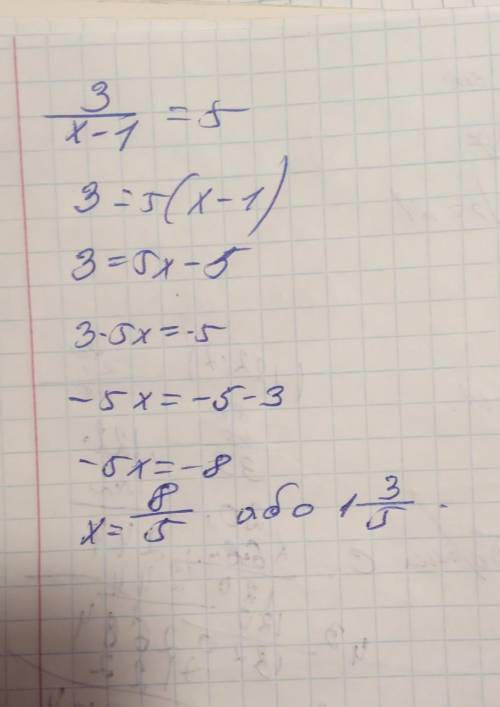 3/(x-1) = 5
3 = 5(x-1)
3 = 5x - 5
3-5x = -5
-5x = -5-3
-5x = -8
x = 8/5 або 1 3/5.